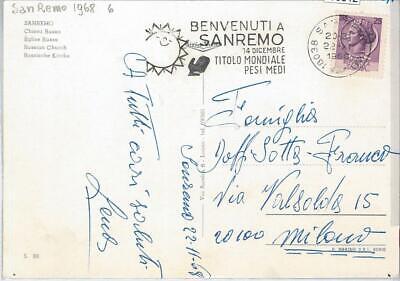 San Remo 1968 6
SANREMO
Chiesa Russa
Eglise Russe
Russian Church
Russische Kirche
BENVENUTI a
SANREMO
14 DICEMBRE
TITOLO MONDIALE
PESI MEDI
18038
A Tutti cari saluti
Sanremo 22-11-68
Famiglia
Dott. Sotta-Franco
Via Valsolda 15
20100 Milano
S. 88